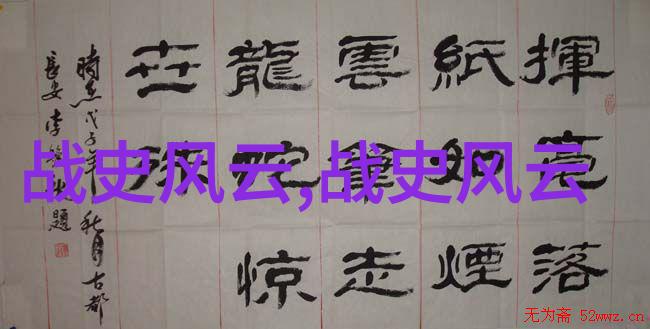 揮毫落
紙如煙
雲筆走
龍蛇惊
世
時在戊子年秋月古都
長安李題
战史风云,战史风云
无为斋 52wwz.cn